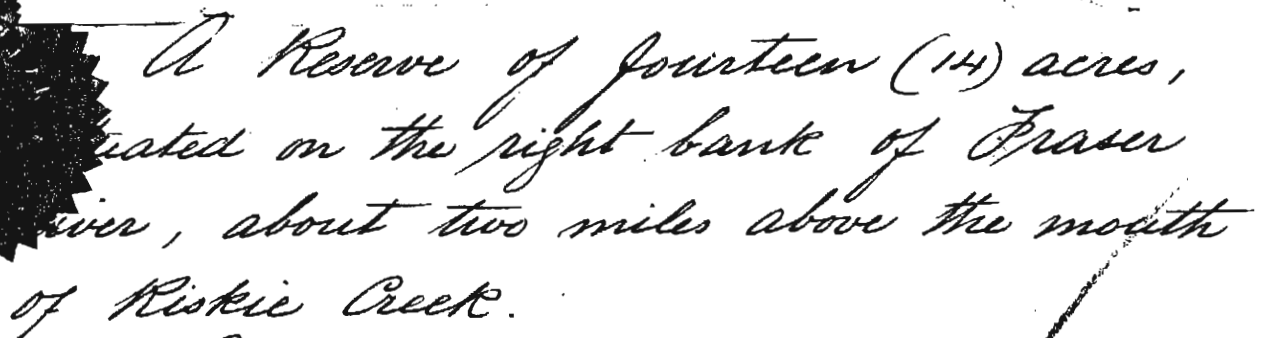 A Reserve of fourteen (14) acres,
on the right bank of Fraser
, about two miles above the mouth
of Riskie Creek.